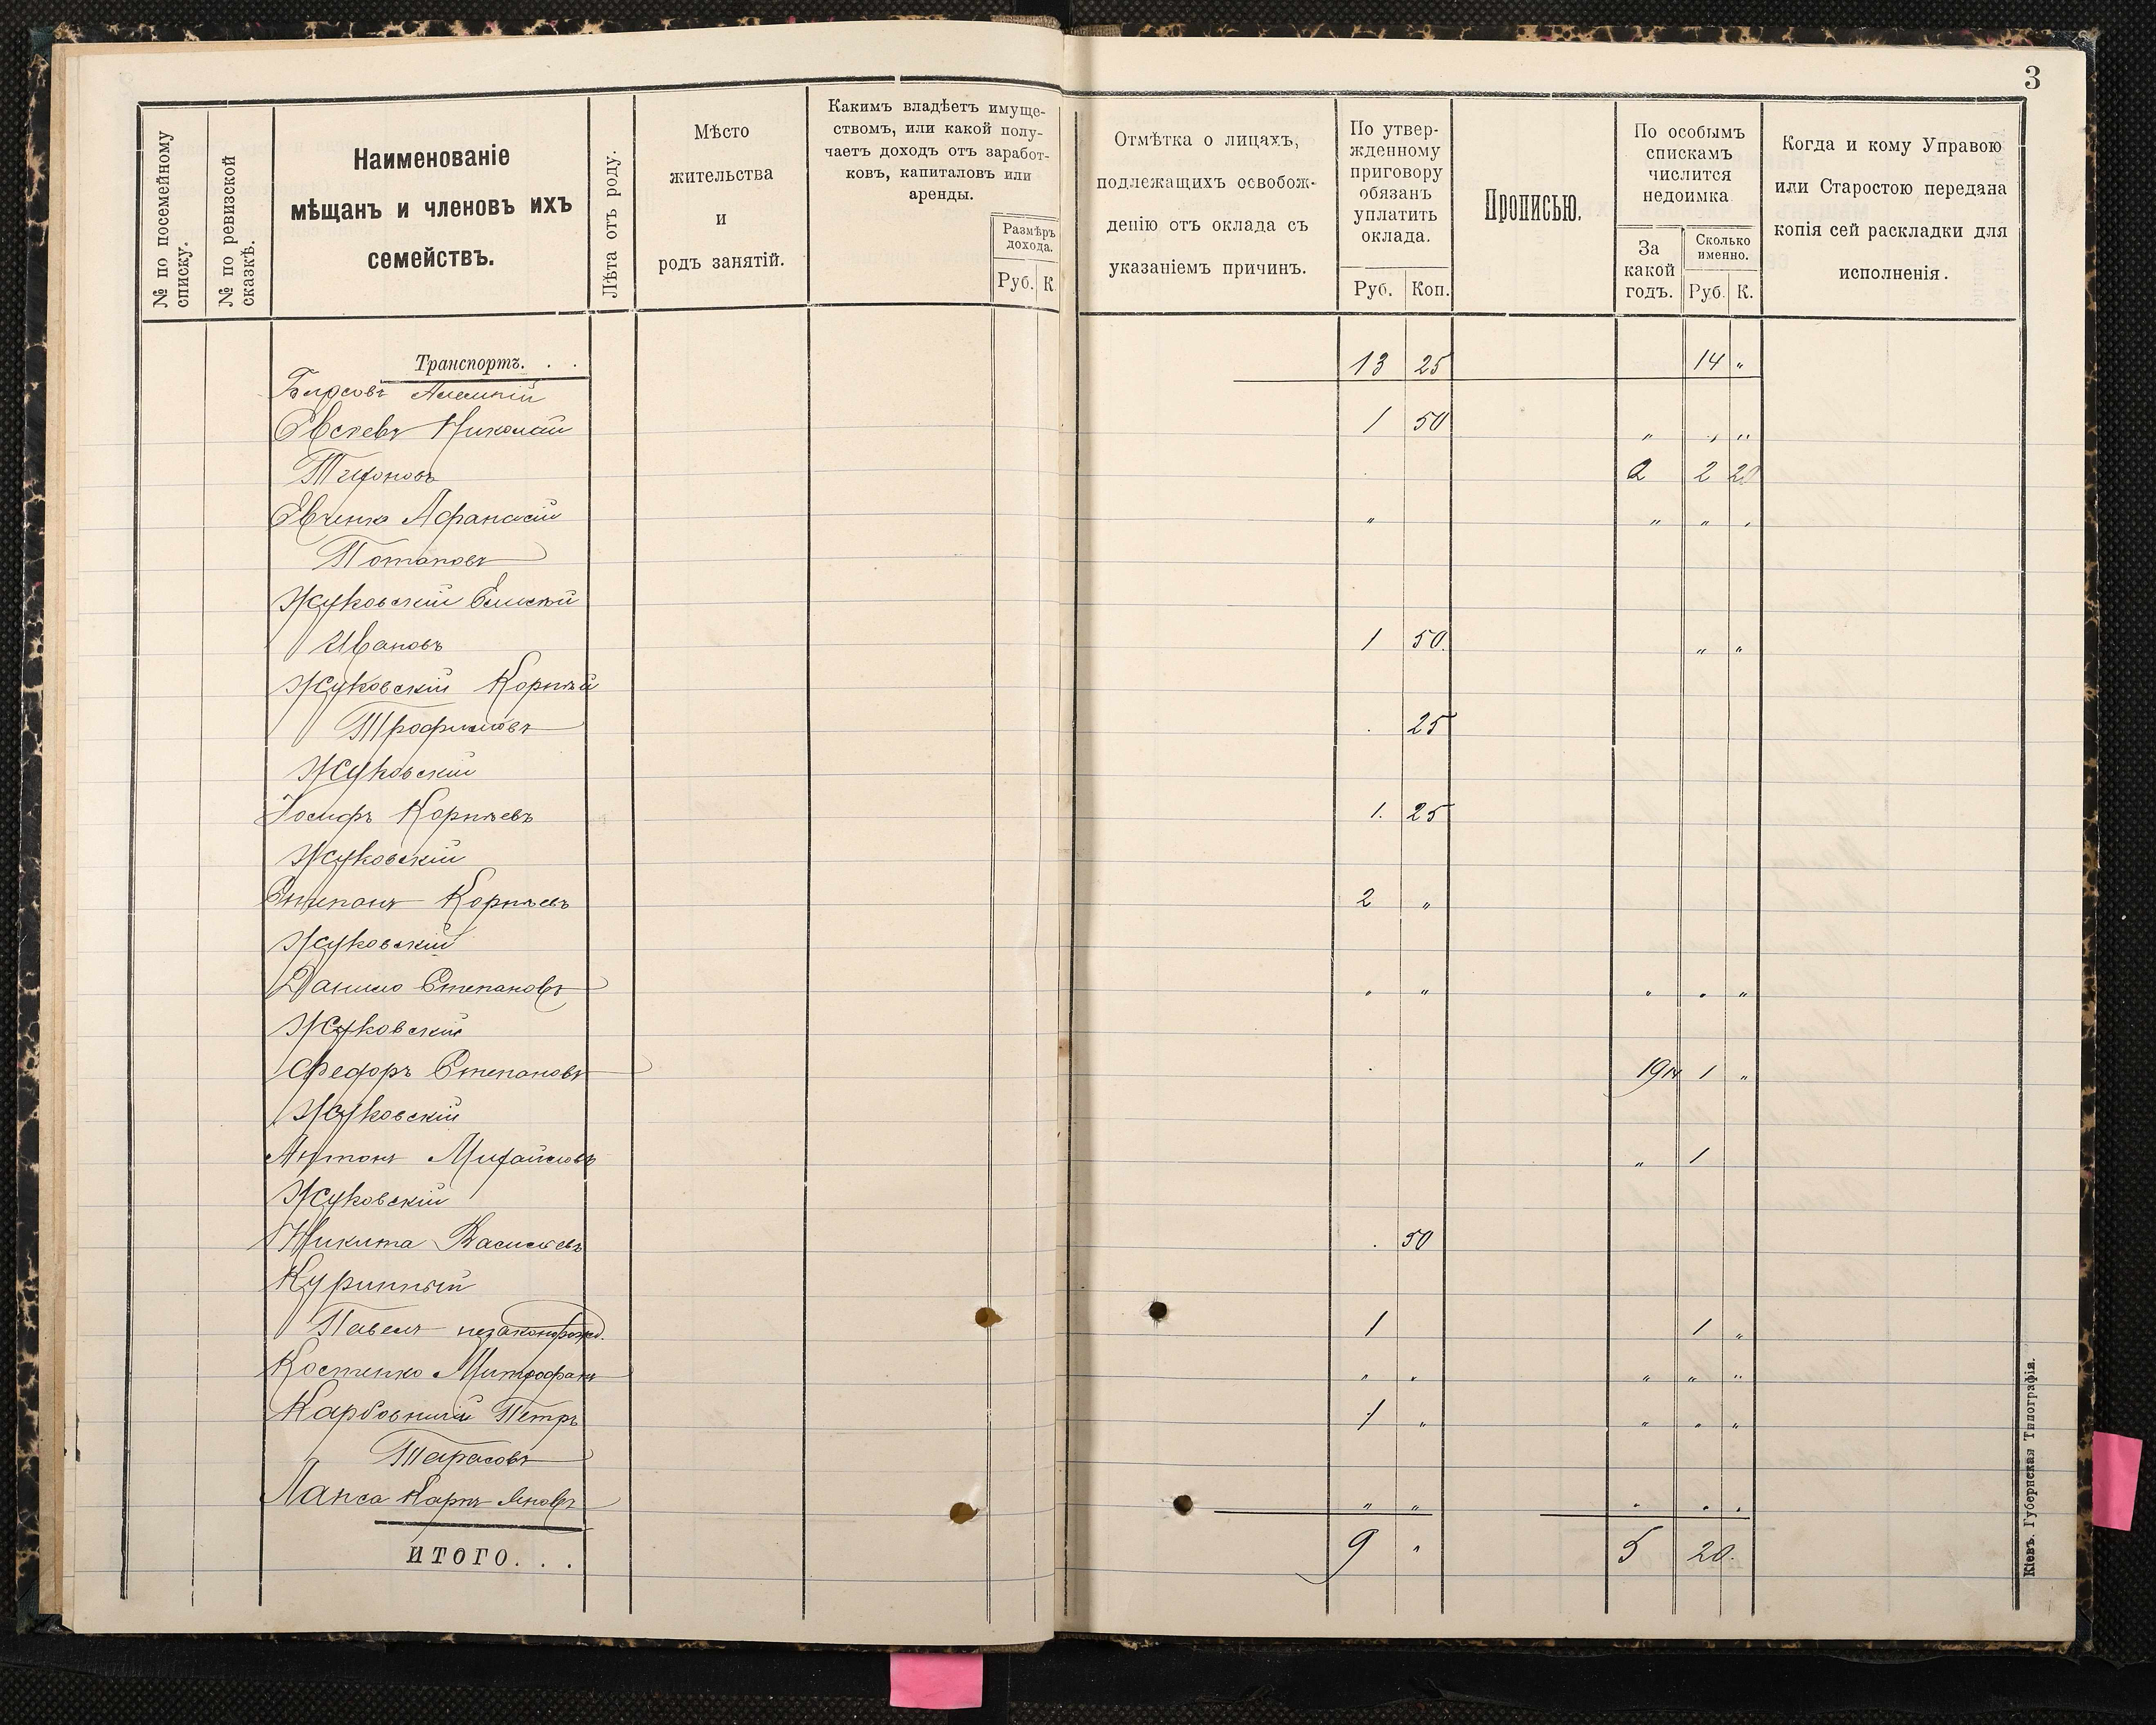 3
№ по посемейному списку.
№ по ревизской сказкѣ.
Наименованіе
мѣщанъ и членовъ ихъ
семействъ.
Лѣта отъ роду.
Мѣсто
жительства
и
родъ занятій.
Какимъ владѣетъ имуще-
ствомъ, или какой полу-
чаетъ доходъ отъ заработ-
ковъ, капиталовъ или
аренды.
Размѣръ
дохода.
Руб. К.
Отмѣтка о лицахъ,
подлежащихъ освобож-
денію отъ оклада съ
указаніемъ причинъ.
По утвер-
жденному
приговору
обязанъ
уплатить
оклада.
Руб. Коп.
Прописью.
По особымъ
спискамъ
числится
недоимка
За
какой
годъ.
Сколько
именно.
Руб. К.
Когда и кому Управою
или Старостою передана
копія сей раскладки для
исполненія.
Транспортъ. . . 13 25 14 "
Николай 1 50 " " "
Тихоновъ 2 2 20
Афанасій " " " "
Потаповъ
Жуковскій Елисей
Ивановъ 1 50. " "
Жуковскій Корнѣй
Трофимовъ . 25
Жуковскій
Іосифъ Корнѣевъ 1. 25
Жуковскій
Степанъ Корнѣевъ 2 "
Жуковскій
Данило Степановъ " " " " "
Жуковскій
Федоръ Степановъ . 1914 1 "
Жуковскій
Антонъ Михайловъ " 1
Жуковскій
Никита Васильевъ . 50
Куринный
Павелъ незаконорожд. 1 1 "
Костенко Митрофанъ " " " " "
Карбовничій Петръ 1 " " " "
Тарасовъ
Лапса Карпъ " " " " "
ИТОГО. . . 9 " 5 20.
Кіевъ. Губернская Типографія.